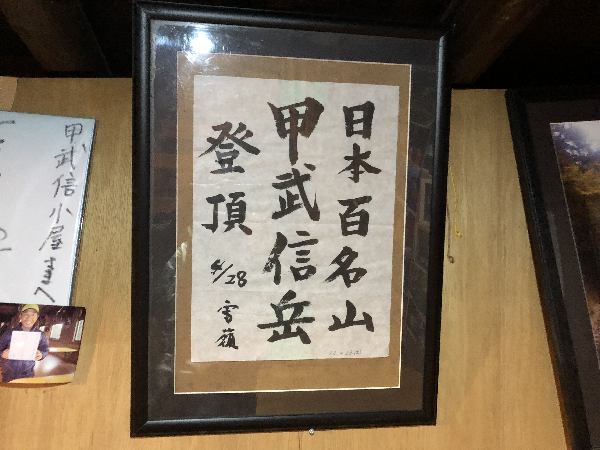 日本百名山
甲武信岳
登頂
4/28 雪嶺
甲武信小屋さまへ